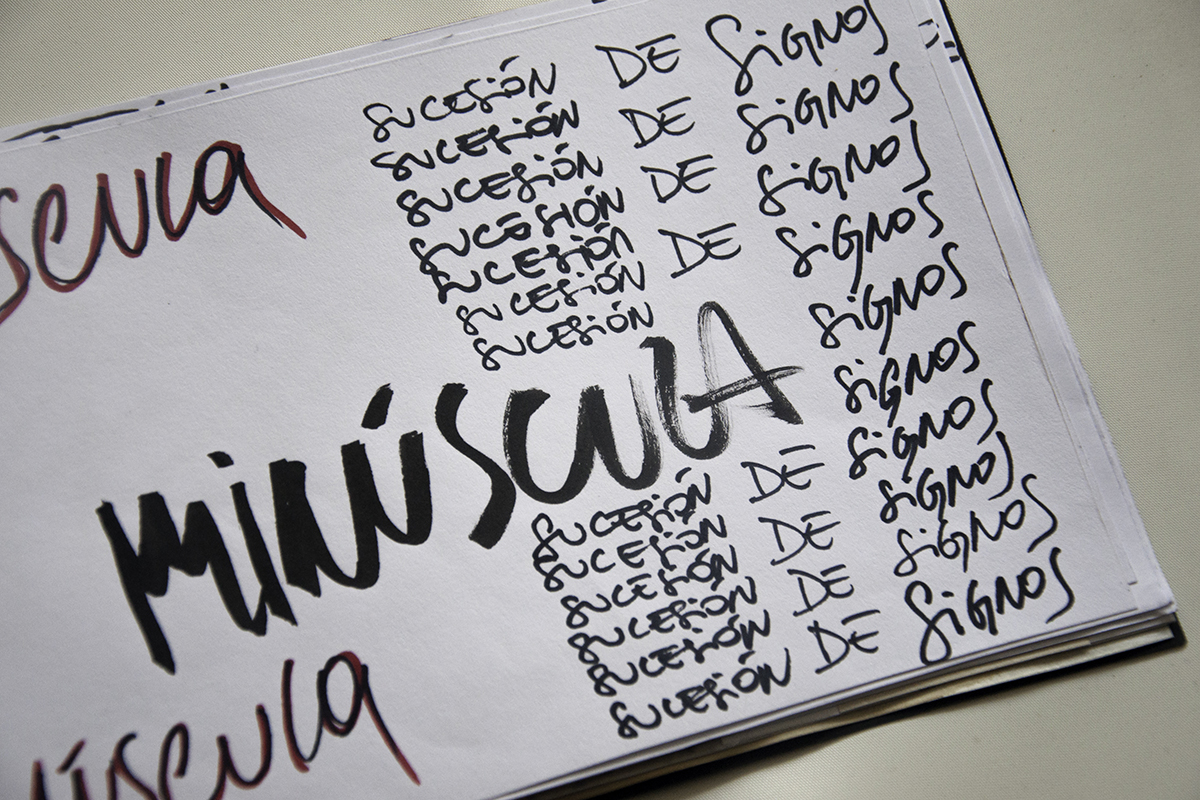 scula
SUCESIÓN DE SIGNOS
SUCESIÓN DE SIGNOS
SUCESIÓN DE SIGNOS
SUCESIÓN DE SIGNOS
SUCESIÓN SIGNOS
SUCESIÓN SIGNOS
SUCESIÓN
MINÚSCULA
SUCESIÓN DE SIGNOS
SUCESIÓN DE SIGNOS
SUCESIÓN
SUCESIÓN DE SIGNOS
SUCESIÓN
SUCESIÓN DE SIGNOS
úscula